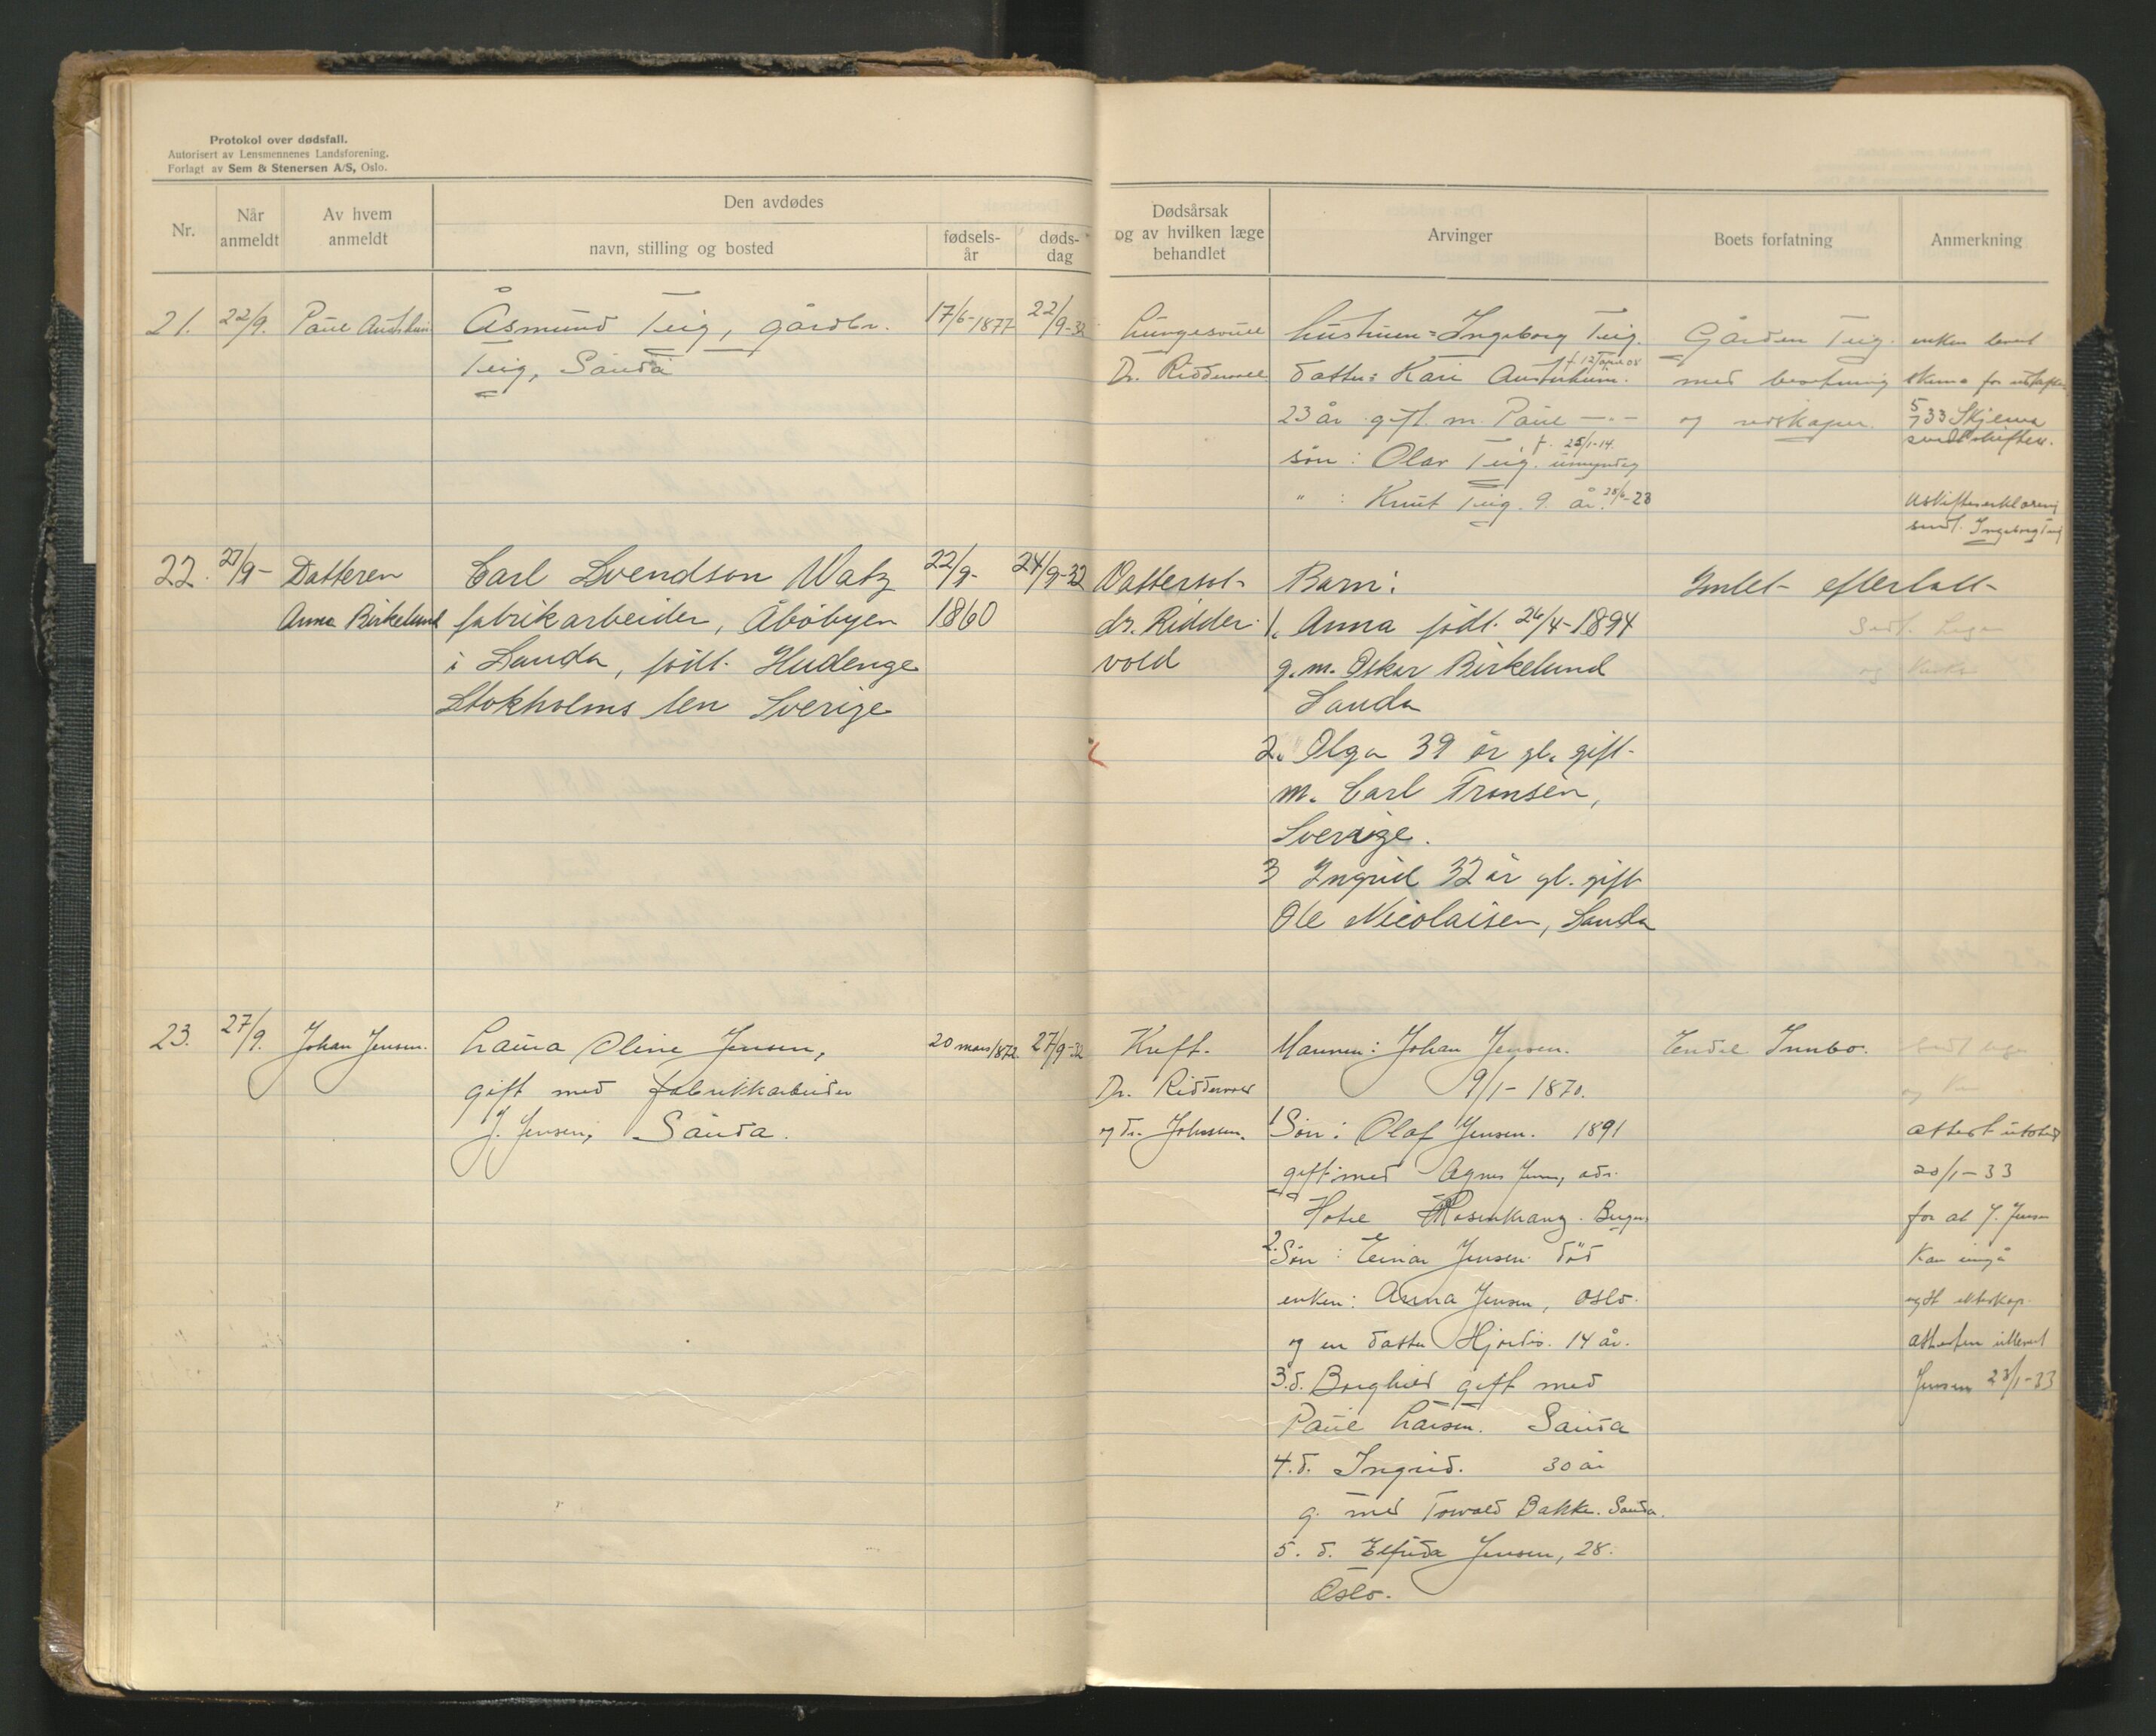 Protokol over dødsfall.
Autorisert av Lensmennenes Landsforening.
Forlagt av Sem & Stenersen A/S, Oslo.
Nr.
Når anmeldt
Av hvem anmeldt
Den avdødes
navn, stilling og bosted
fødsels-år
døds-dag
Dødsårsak og av hvilken læge behandlet
Arvinger
Boets forfatning
Anmerkning
21. 22/9. Paul Austrheim Åsmund Teig, gårdbr. 17/6-1877 22/9-32
Teig, Sauda
Lungesvull
Dr. Riddervold
Hustruen: Ingeborg Teig.
datter: Kari Austerheim.
23 år gift m. Paul -"-
søn: Olav Teig. f. 25/1-14. umyndig
" : Knut Teig. 9. år. 28/6-23
Gården Teig.
med besetning
og redskaper.
enken levert
5/7 33 Skjema
sendt skifteretten.
uskifteerklæring
sendt. Ingeborg Teig
22. 27/9- Datteren Carl Svendson Watz 22/9- 24/9-32
Anna Birkelund fabrikarbeider, Åbøbyen 1860
i Sauda, født Hudenge
Stokholms len Sverige
Vattersot-
dr. Ridder-
vold
Barn:
1. Anna født 26/4-1894
g. m. Oskar Birkelund
Sauda
2. Olga 39 år gl. gift
m. Carl Fransen,
Sverige.
3 Ingrid 32 år gl. gift
Ole Nicolaisen, Sauda
Intet efterlatt
23. 27/9. Johan Jensen. Laura Oline Jensen, 20 mars 1872 27/9-32
gift med fabrikkarbeider
J. Jensen, Sauda.
Kreft.
Dr. Riddervold
og dr. Johnsen.
Mannen: Johan Jensen.
9/1-1870.
1 Søn: Olaf Jensen. 1891
gift med Agnes Jensen, adr.
Hotel Rosenkranz. Bergen
2. Søn: Einar Jensen død
enken: Anna Jensen, Oslo.
og en datter Hjørdis. 14 år.
3. d. Borghild gift med
Paul Larsen. Sauda
4. d. Ingrid. 30 år
g. med Torvald Bakke. Sauda.
5. d. Elfrida Jensen, 28.
Oslo.
Endel Innbo.
attest utsted
20/1-33
for at J. Jensen
kan inngå
nytt ekteskap.
attesten utlevert
Jensen 23/1-33